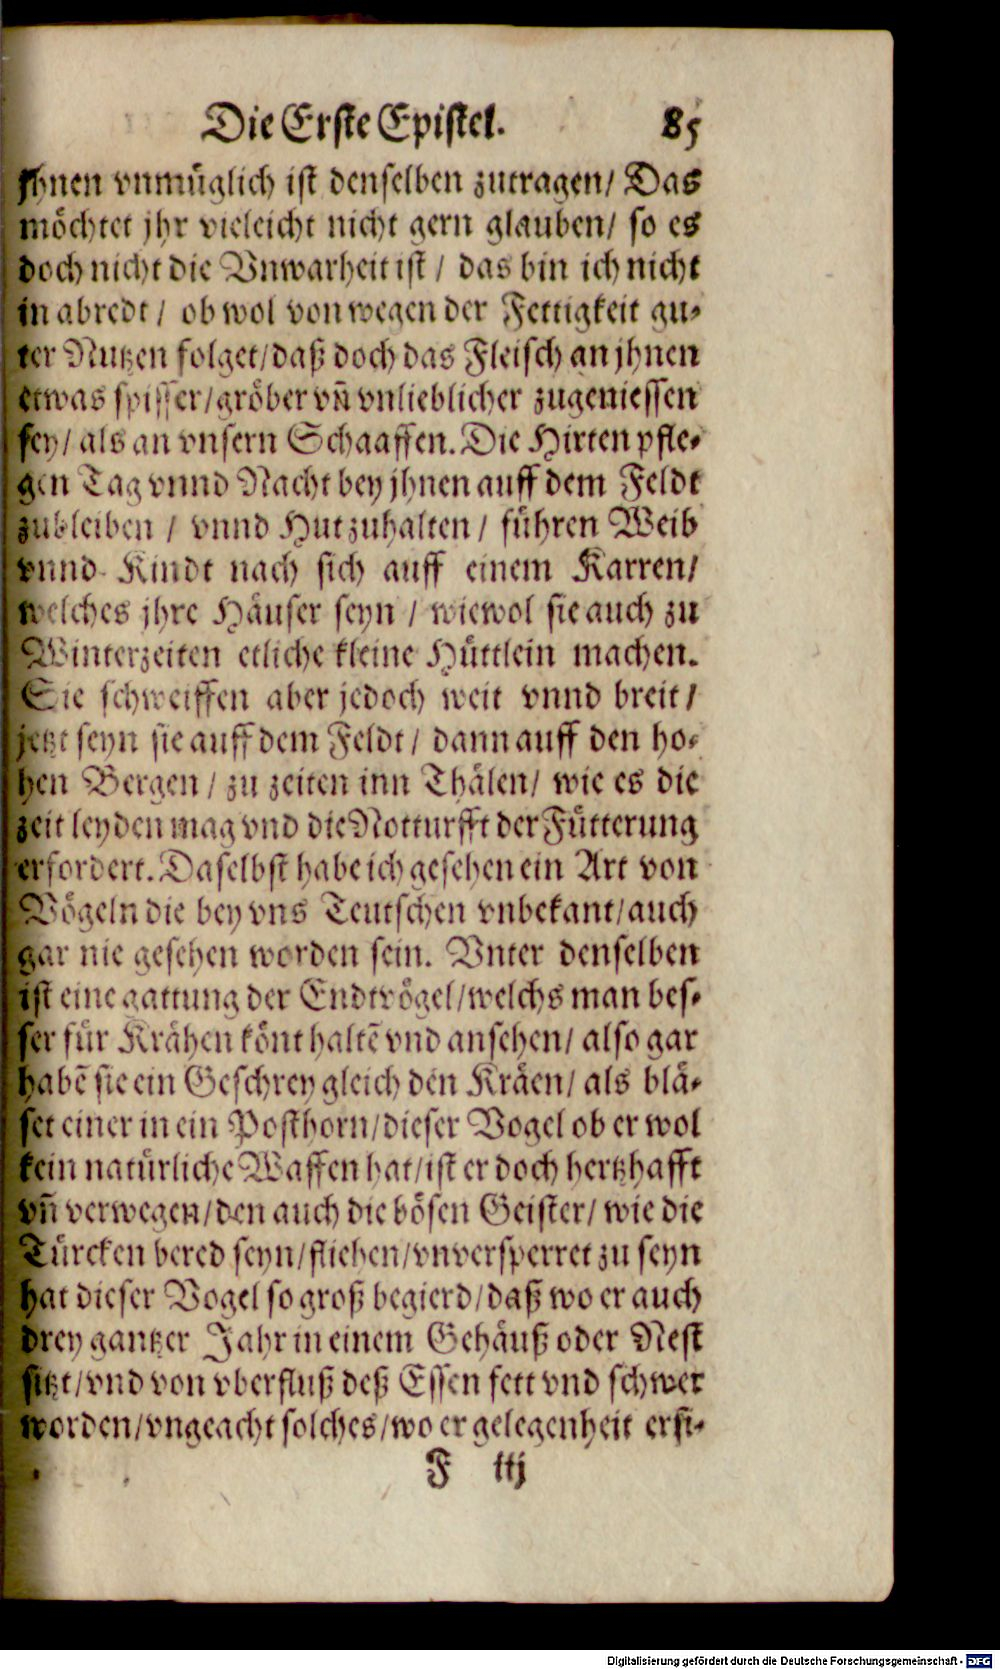 Die Erste Epistel. 85
jhnen vnmüglich ist denselben zutragen/ Das
möchtet jhr vieleicht nicht gern glauben/ so es
doch nicht die Vnwarheit ist / das bin ich nicht
in abredt / ob wol von wegen der Fettigkeit gu⸗
ter Nutzen folget/daß doch das Fleisch an jhnen
etwas spisser/gröber vñ vnlieblicher zugeniessen
sey/ als an vnsern Schaaffen. Die Hirten pfle⸗
gen Tag vnnd Nacht bey jhnen auff dem Feldt
zubleiben / vnnd Hut zuhalten / führen Weib
vnnd Kindt nach sich auff einem Karren/
welches jhre Häuser seyn / wiewol sie auch zu
Winterzeiten etliche kleine Hüttlein machen.
Sie schweiffen aber jedoch weit vnnd breit /
jetzt seyn sie auff dem Feldt / dann auff den ho⸗
hen Bergen / zu zeiten inn Thälen/ wie es die
zeit leyden mag vnd die Notturfft der Fütterung
erfordert. Daselbst habe ich gesehen ein Art von
Vögeln die bey vns Teutschen vnbekant/auch
gar nie gesehen worden sein. Vnter denselben
ist eine gattung der Endtvögel/welchs man bes⸗
ser für Krähen könt haltē vnd ansehen/ also gar
habē sie ein Geschrey gleich den Kräen/ als blä⸗
set einer in ein Posthorn/dieser Vogel ob er wol
kein natürliche Waffen hat/ist er doch hertzhafft
vñ verwegen/den auch die bösen Geister/ wie die
Türcken bered seyn/fliehen/vnversperret zu seyn
hat dieser Vogel so groß begierd/daß wo er auch
drey gantzer Jahr in einem Gehäuß oder Nest
sitzt/vnd von vberfluß deß Essen fett vnd schwer
worden/vngeacht solches/wo er gelegenheit ersi⸗
F iij
Digitalisierung gefördert durch die Deutsche Forschungsgemeinschaft - DFG